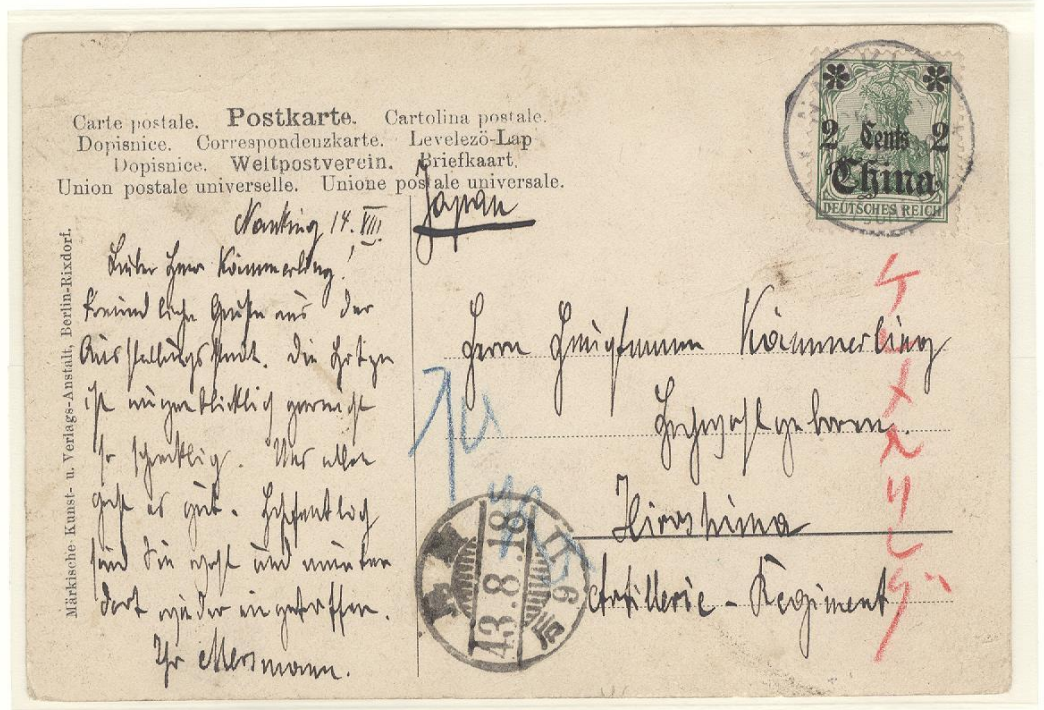 Carte postale. Postkarte. Cartolina postale.
Dopisnice. Correspondenzkarte. Levelező-Lap
Dopisnice. Weltpostverein. Briefkaart.
Union postale universelle. Unione postale universale.
Märkische Kunst- u. Verlags-Anstalt, Berlin-Rixdorf.
2 Cents 2
China
DEUTSCHES REICH
Japan
Nanking 14. VIII
Lieber Herr Kämmerling!
Freundliche Grüße aus der
Ausstellungsstadt. Die Hitze
ist augenblicklich geradezu
schrecklich. Uns allen
geht es gut. Hoffentlich
sind Sie wohl und munter
dort wieder eingetroffen.
Ihr
Herrn Hauptmann Kämmerling
Hochwohlgeboren.
Hiroshima
Artillerie-Regiment
43.8.18